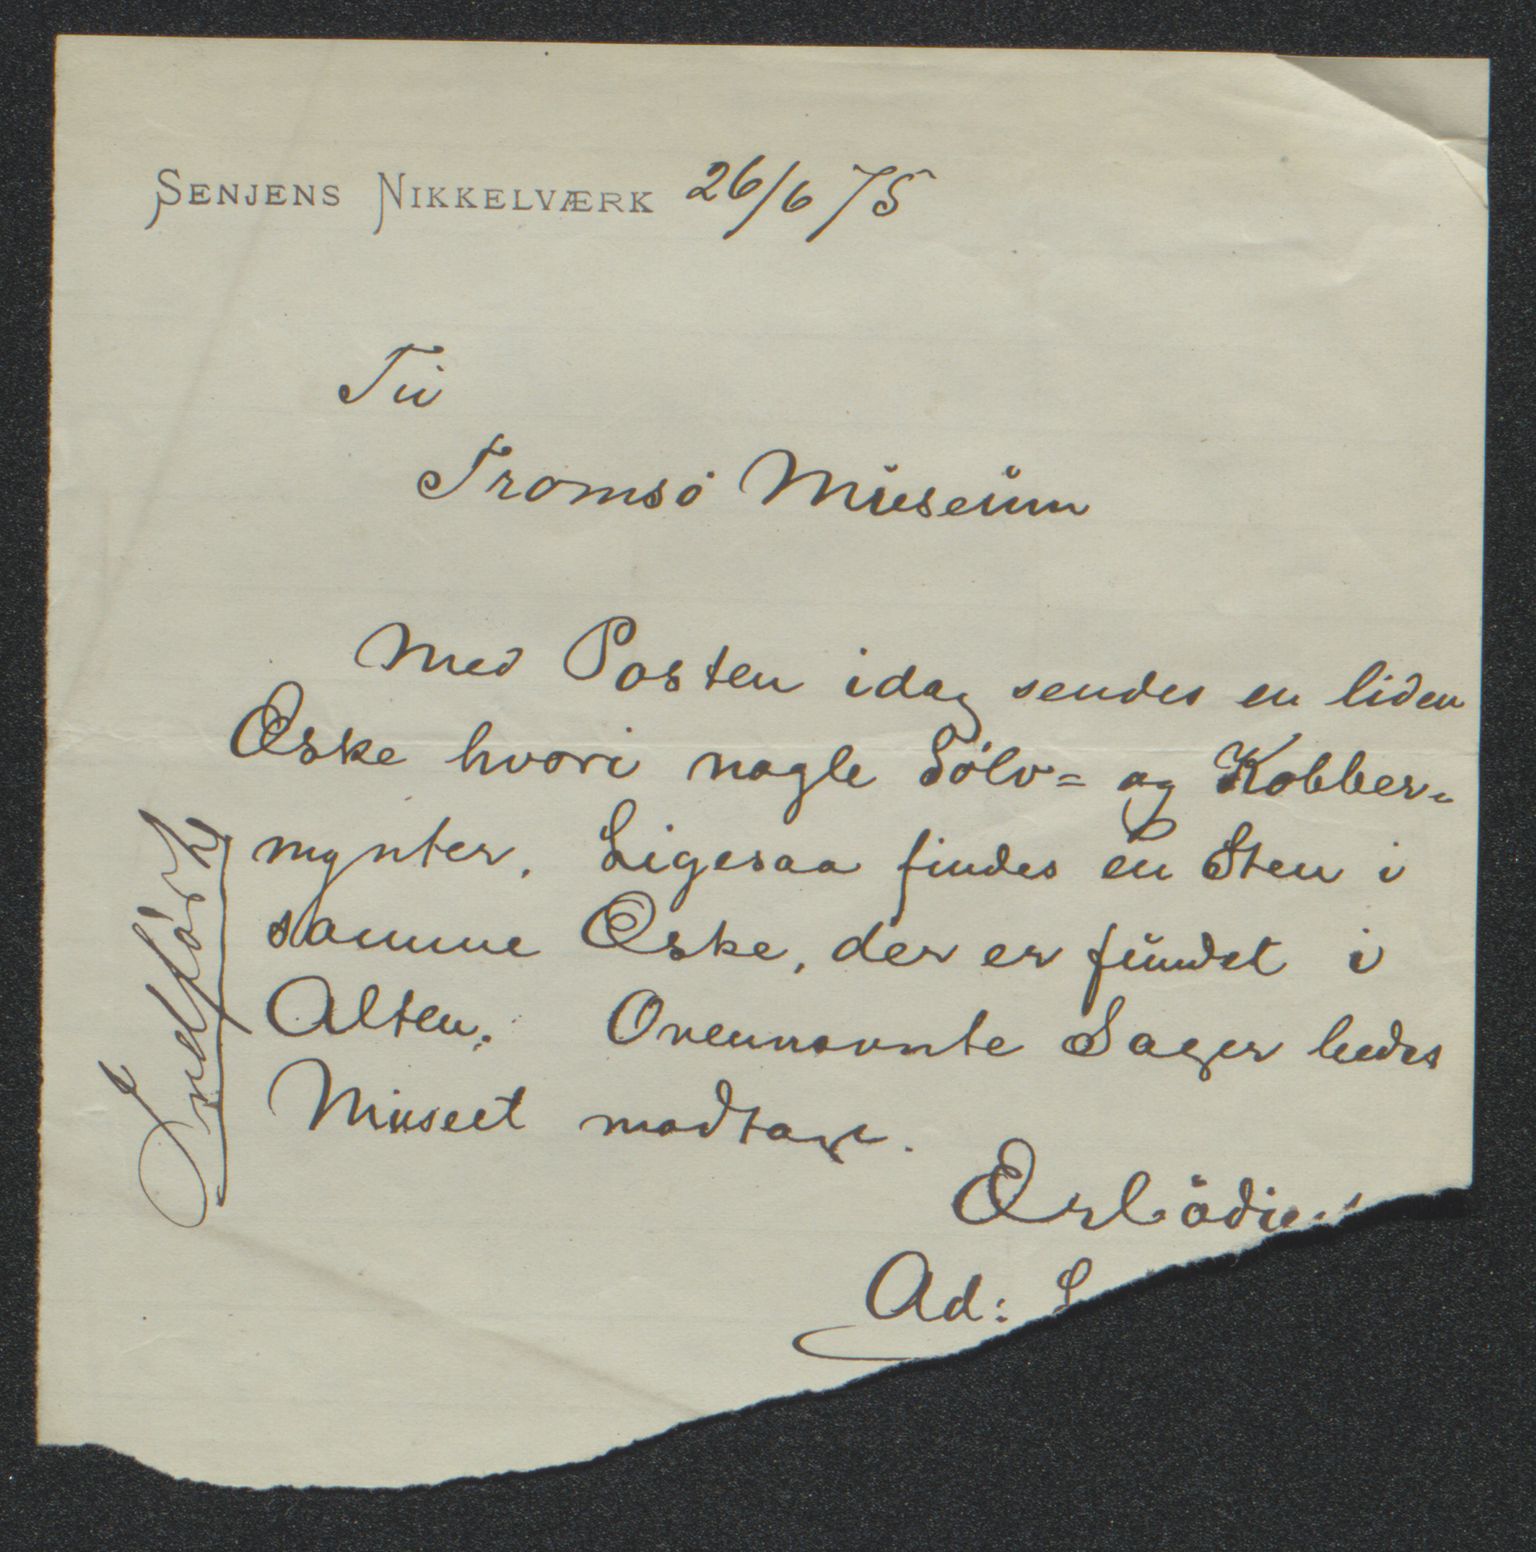 SENJENS NIKKELVÆRK 26/6 75
Til
Tromsø Museum
Med Posten idag sendes en liden
Æske hvori nogle Sølv= og Kobber=
mynter. Ligesaa findes en Sten i
samme Æske, der er fundet i
Alten. Ovennævnte Sager bedes
Museet modtage.
Ærbödig
Ad:
Indført